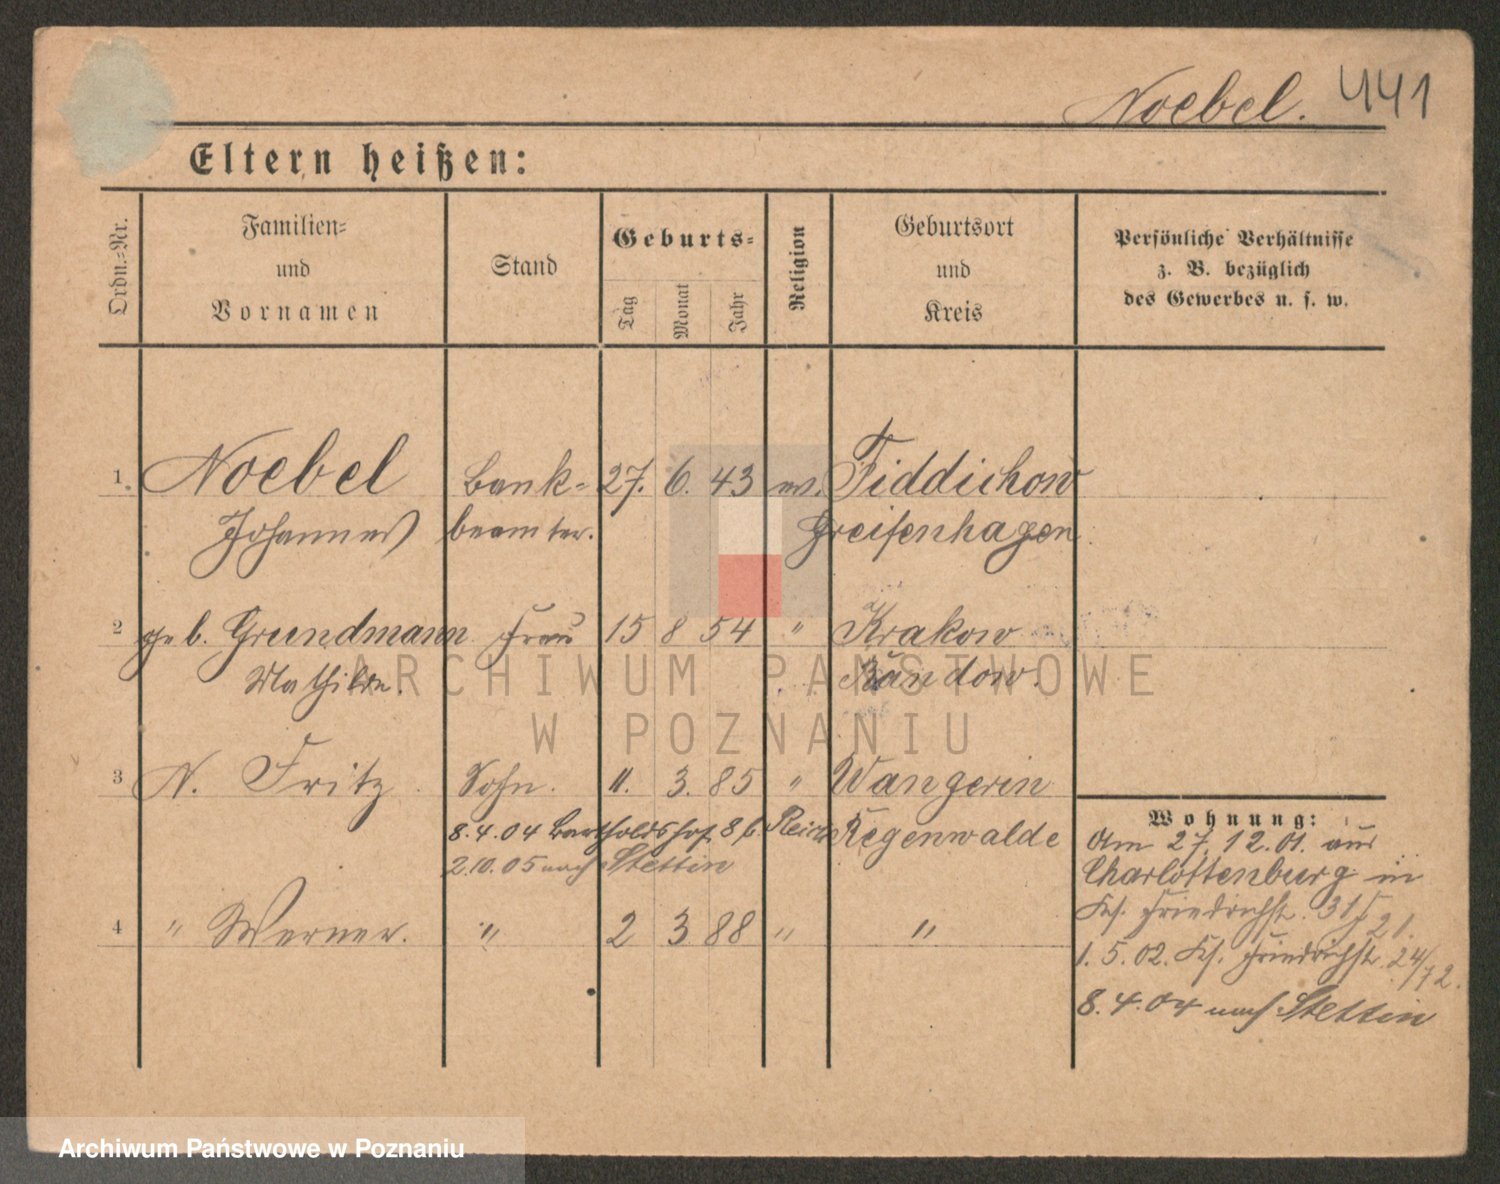 Noebel. 441
Eltern heißen:
Ordn.-Nr.
Familien-
und
Vornamen
Stand
Geburts-
Tag
Monat
Jahr
Religion
Geburtsort
und
Kreis
Persönliche Verhältnisse
z. B. bezüglich
des Gewerbes u. s. w.
1. Noebel Bank- 27. 6. 43 ev. Fiddichow
Johannes beamter. Greifenhagen
2 geb. Grundmann Frau 15 8 54 " Krakow
Mathilde. Randow.
3 N. Fritz Sohn. 11. 3. 85 " Wangerin
8.4.04 Bartholdshof 8 b. Regenwalde
2.10.05 nach Stettin
4 " Werner. " 2 3 88 " "
Wohnung:
Am 27.12.01. aus
Charlottenburg in
Friedrichst. 31
1.5.02. Friedrichst. 24/72.
8.4.04 nach Stettin
ARCHIWUM PAŃSTWOWE
W POZNANIU
Archiwum Państwowe w Poznaniu